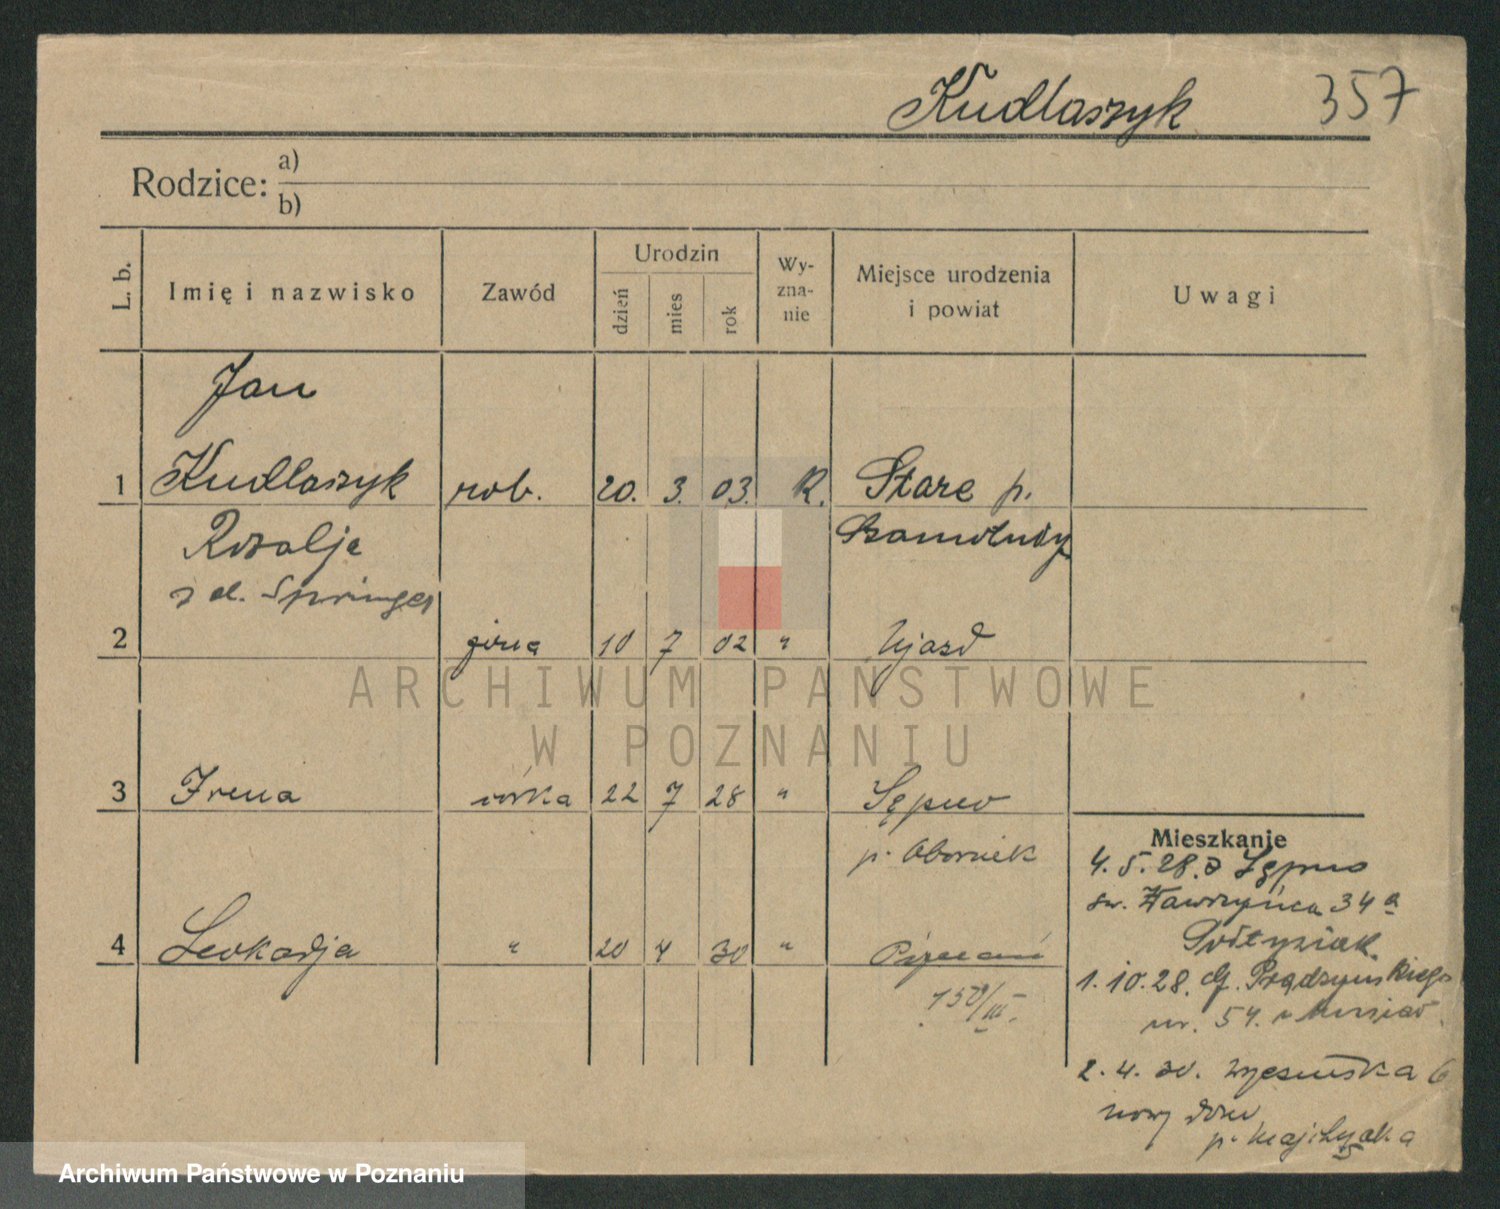 Kudlaszyk 357
Rodzice: a)
b)
L. b. Imię i nazwisko Zawód Urodzin dzień mies rok Wy-zna-nie Miejsce urodzenia i powiat Uwagi
Jan
1 Kudlaszyk rob. 20. 3. 03. R. Stare p.
Rozalja Szamotuły
z d. Springer
2 żona 10 7 02 " Ujazd
ARCHIWUM PAŃSTWOWE
W POZNANIU
3 Irena córka 22 7 28 " Sępno
p. Obornik
4 Leokadja " 20 4 30 " Poznań
150/III.
Mieszkanie
4. 5. 28. z Sępno
św. Wawrzyńca 34a
Sołtysiak.
1. 10. 28. G. Prądzyńskiego
nr. 54. u
2. 4. 30.
nowy dom
p.
Archiwum Państwowe w Poznaniu